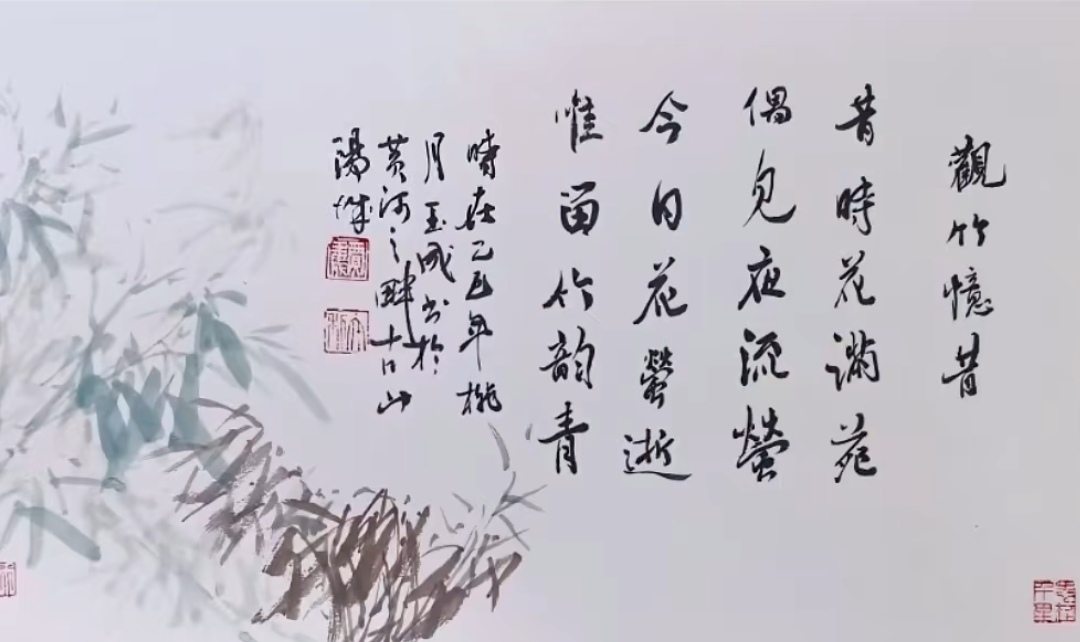 觀竹憶昔
昔時花滿苑
偶見夜流螢
今日花螢逝
惟留竹韵青
時在乙巳年桃
月玉成书於
黄河之畔古山
陽城